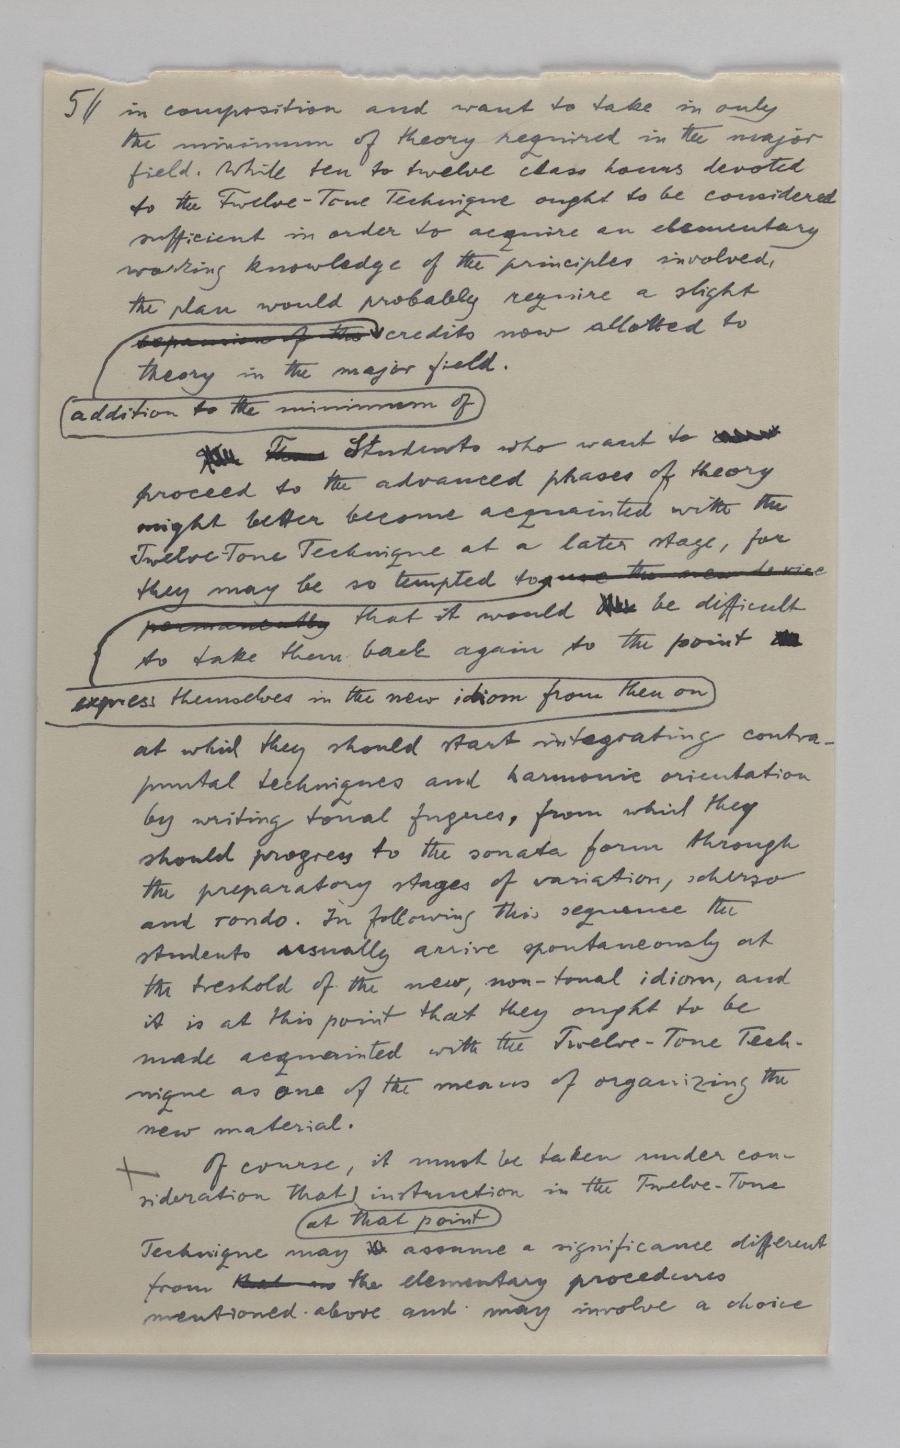 5)
in composition and want to take in only
the minimum of theory required in the major
field. While ten to twelve class hours devoted
to the Twelve-Tone Technique ought to be considered
sufficient in order to acquire an elementary
working knowledge of the principles involved,
the plan would probably require a slight
expansion of the credits now allotted to
theory in the major field.
addition to the minimum of
Students who want to
proceed to the advanced phases of theory
might better become acquainted with the
Twelve-Tone Technique at a later stage, for
they may be so tempted to use the new device
permanently that it would be difficult
to take them back again to the point
express themselves in the new idiom from then on
at whih they should start integrating contra-
puntal techniques and harmonic orientation
by writing tonal fugues, from whih they
should progress to the sonata form through
the preparatory stages of variation, scherzo
and rondo. In following this sequence the
students usually arrive spontaneously at
the treshold of the new, non-tonal idiom, and
it is at this point that they ought to be
made acquainted with the Twelve-Tone Tech-
nique as one of the means of organizing the
new material.
Of course, it must be taken under con-
sideration that instruction in the Twelve-Tone
at that point
Technique may assume a significance different
from the elementary procedures
mentioned above and may involve a choice